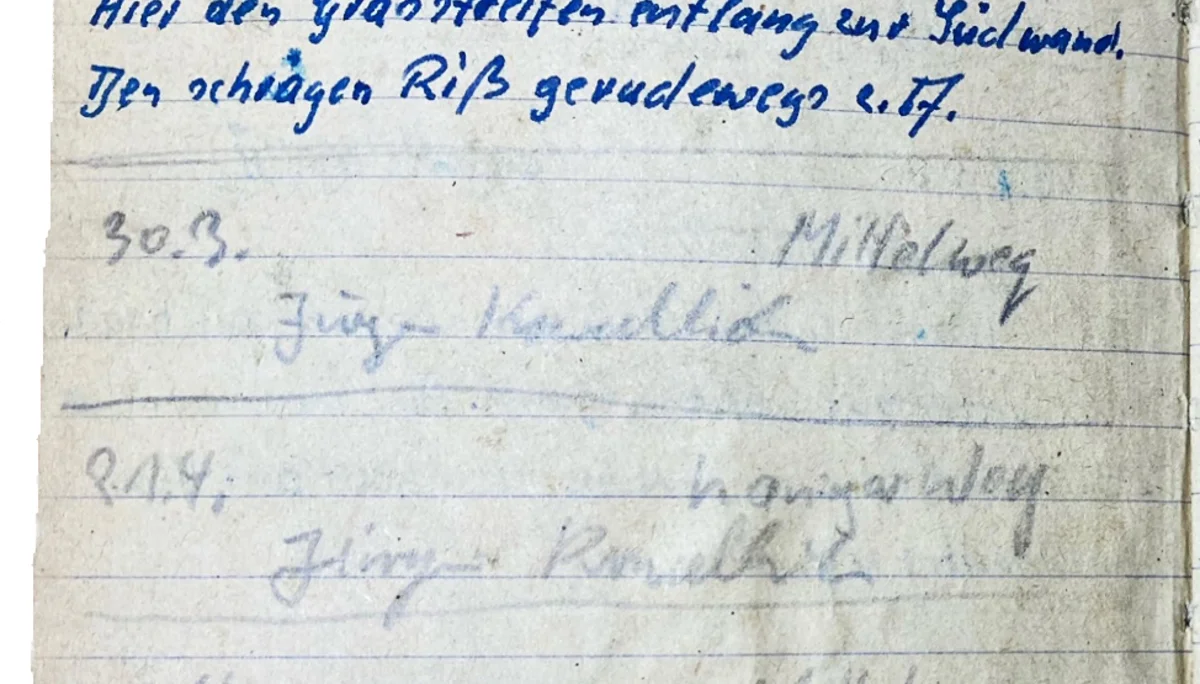 Hier den Grasstreifen entlang zur Südwand.
Den schrägen Riß geradewegs z. Gf.
30.3. Mittelweg
Jürgen
21.4. Weg
Jürgen